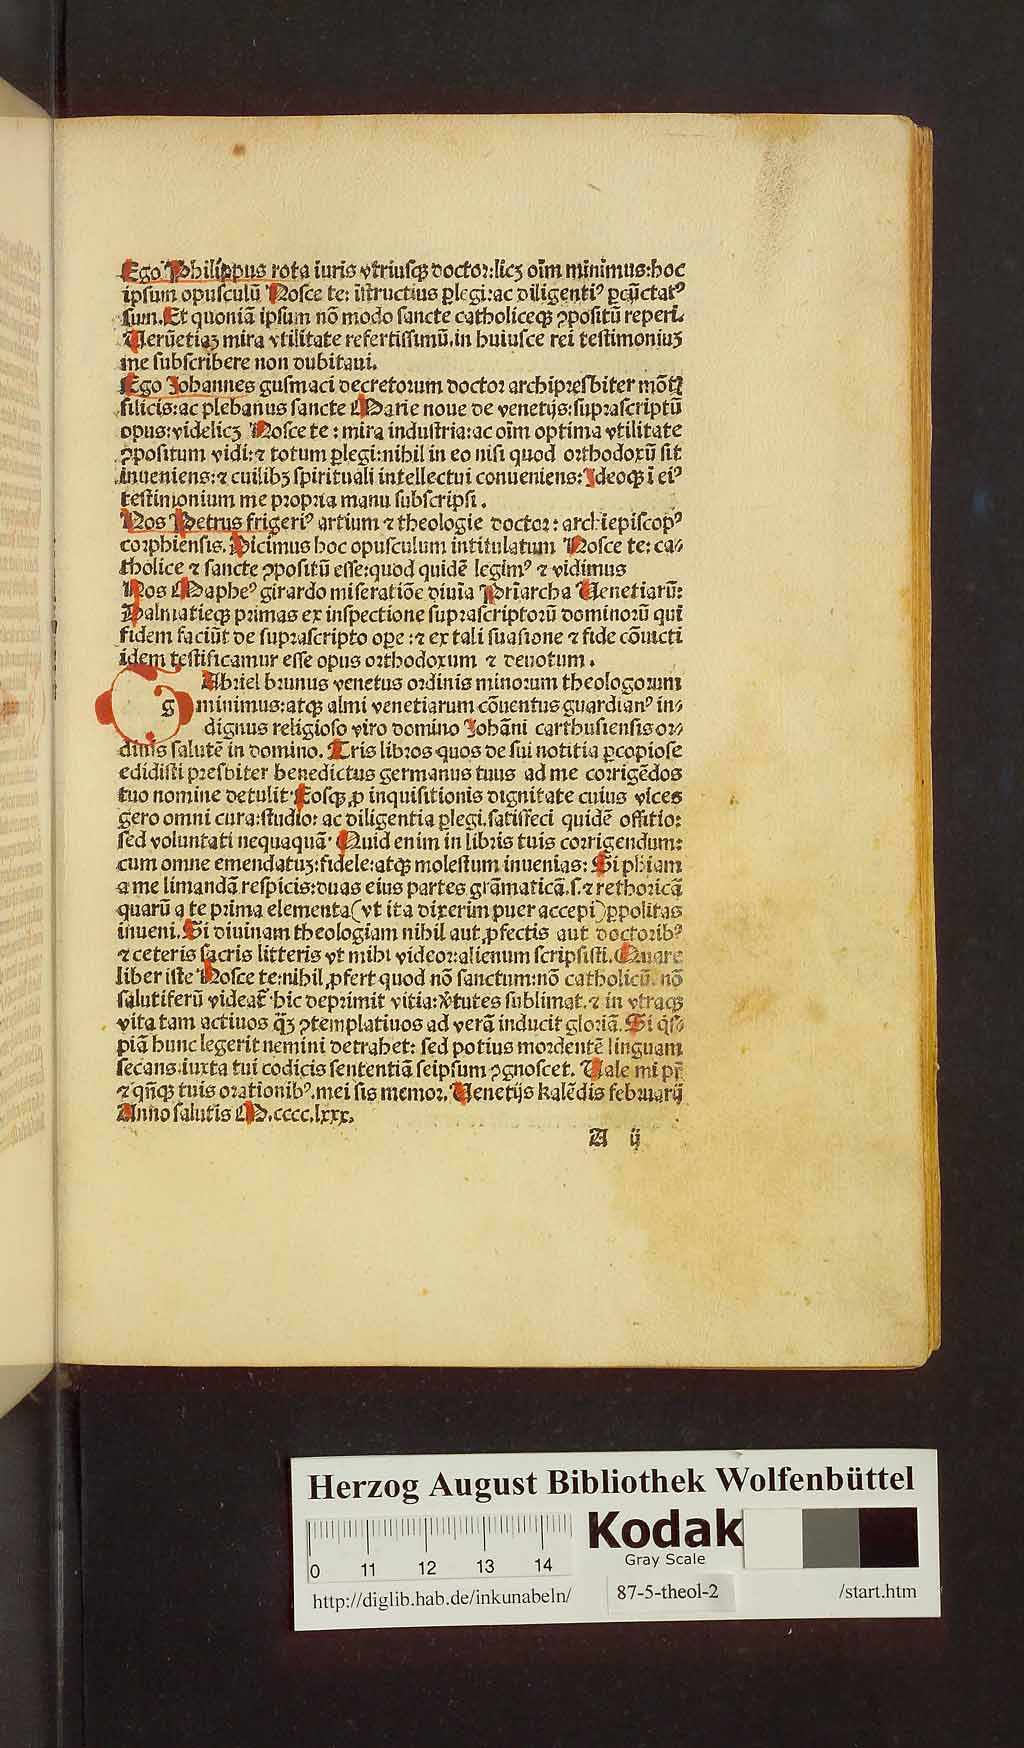 Ego Philippus rota iuris vtriusqꝫ doctor: licꝫ oīm minimus: hoc
ipsum opusculū Nosce te: īstructius ꝑlegi: ac diligentiꝰ ꝑcūctatꝰ
sum. Et quoniā ipsum nō modo sancte catholiceqꝫ ꝯpositū reperi.
Verūetiaꝫ mira vtilitate refertissimū. in huiusce rei testimoniuꝫ
me subscribere non dubitaui.
Ego Johannes gusmaci decretorum doctor archipresbiter mōtꝭ
silicis: ac plebanus sancte Marie noue de venetijs: suprascriptū
opus: videlicꝫ Nosce te: mira industria: ac oīm optima vtilitate
ꝯpositum vidi: ⁊ totum ꝑlegi: nihil in eo nisi quod orthodoxū sit
inueniens: ⁊ cuilibꝫ spirituali intellectui conueniens: Jdeoqꝫ ī eiꝰ
testimonium me propria manu subscripsi.
Nos Petrus frigeriꝰ artium ⁊ theologie doctor: archiepiscopꝰ
corphiensis. Dicimus hoc opusculum intitulatum Nosce te: ca⸗
tholice ⁊ sancte ꝯpositū esse: quod quidē legimꝰ ⁊ vidimus
Nos Mapheꝰ girardo miseratiōe diuia Pr̄iarcha Venetiarū:
Dalmatieqꝫ primas ex inspectione suprascriptorū dominorū qui
fidem faciūt de suprascripto oꝑe: ⁊ ex tali suasione ⁊ fide cōuicti
idem testificamur esse opus orthodoxum ⁊ deuotum.
g Abriel brunus venetus ordinis minorum theologorum
minimus: atqꝫ almi venetiarum cōuentus guardianꝰ in⸗
dignus religioso viro domino Johāni carthusiensis or⸗
dinis salutē in domino. Tris libros quos de sui notitia ꝑcopiose
edidisti presbiter benedictus germanus tuus ad me corrigēdos
tuo nomine detulit. Eosqꝫ ꝓ inquisitionis dignitate cuius vices
gero omni cura: studio: ac diligentia ꝑlegi. satisfeci quidē offitio:
sed voluntati nequaquā. Quid enim in libris tuis corrigendum:
cum omne emendatuꝫ: fidele: atqꝫ molestum inuenias: Si phiam
a me limandā respicis: duas eius partes grāmaticā. s. ⁊ rethoricā
quarū a te prima elementa (vt ita dixerim puer accepi) ꝑpolitas
inueni. Si diuinam theologiam nihil aut ꝓfectis aut doctoribꝰ
⁊ ceteris sacris litteris vt mihi videor: alienum scripsisti. Quare
liber iste Nosce te: nihil ꝓfert quod nō sanctum: nō catholicū. nō
salutiferū videat̄. hic deprimit vitia: v̄tutes sublimat. ⁊ in vtraqꝫ
vita tam actiuos q̄ꝫ ꝯtemplatiuos ad verā inducit gloriā. Si q̄s
piā hunc legerit nemini detrahet: sed potius mordentē linguam
secans. iuxta tui codicis sententiā seipsum ꝯgnoscet. Vale mi pr̄
⁊ qn̄qꝫ tuis orationibꝰ. mei sis memor. Venetijs kalēdis februarij
Anno salutis M.cccc.lxxx.
A ij
Herzog August Bibliothek Wolfenbüttel
Kodak
Gray Scale
0 11 12 13 14
http://diglib.hab.de/inkunabeln/ 87-5-theol-2 /start.htm